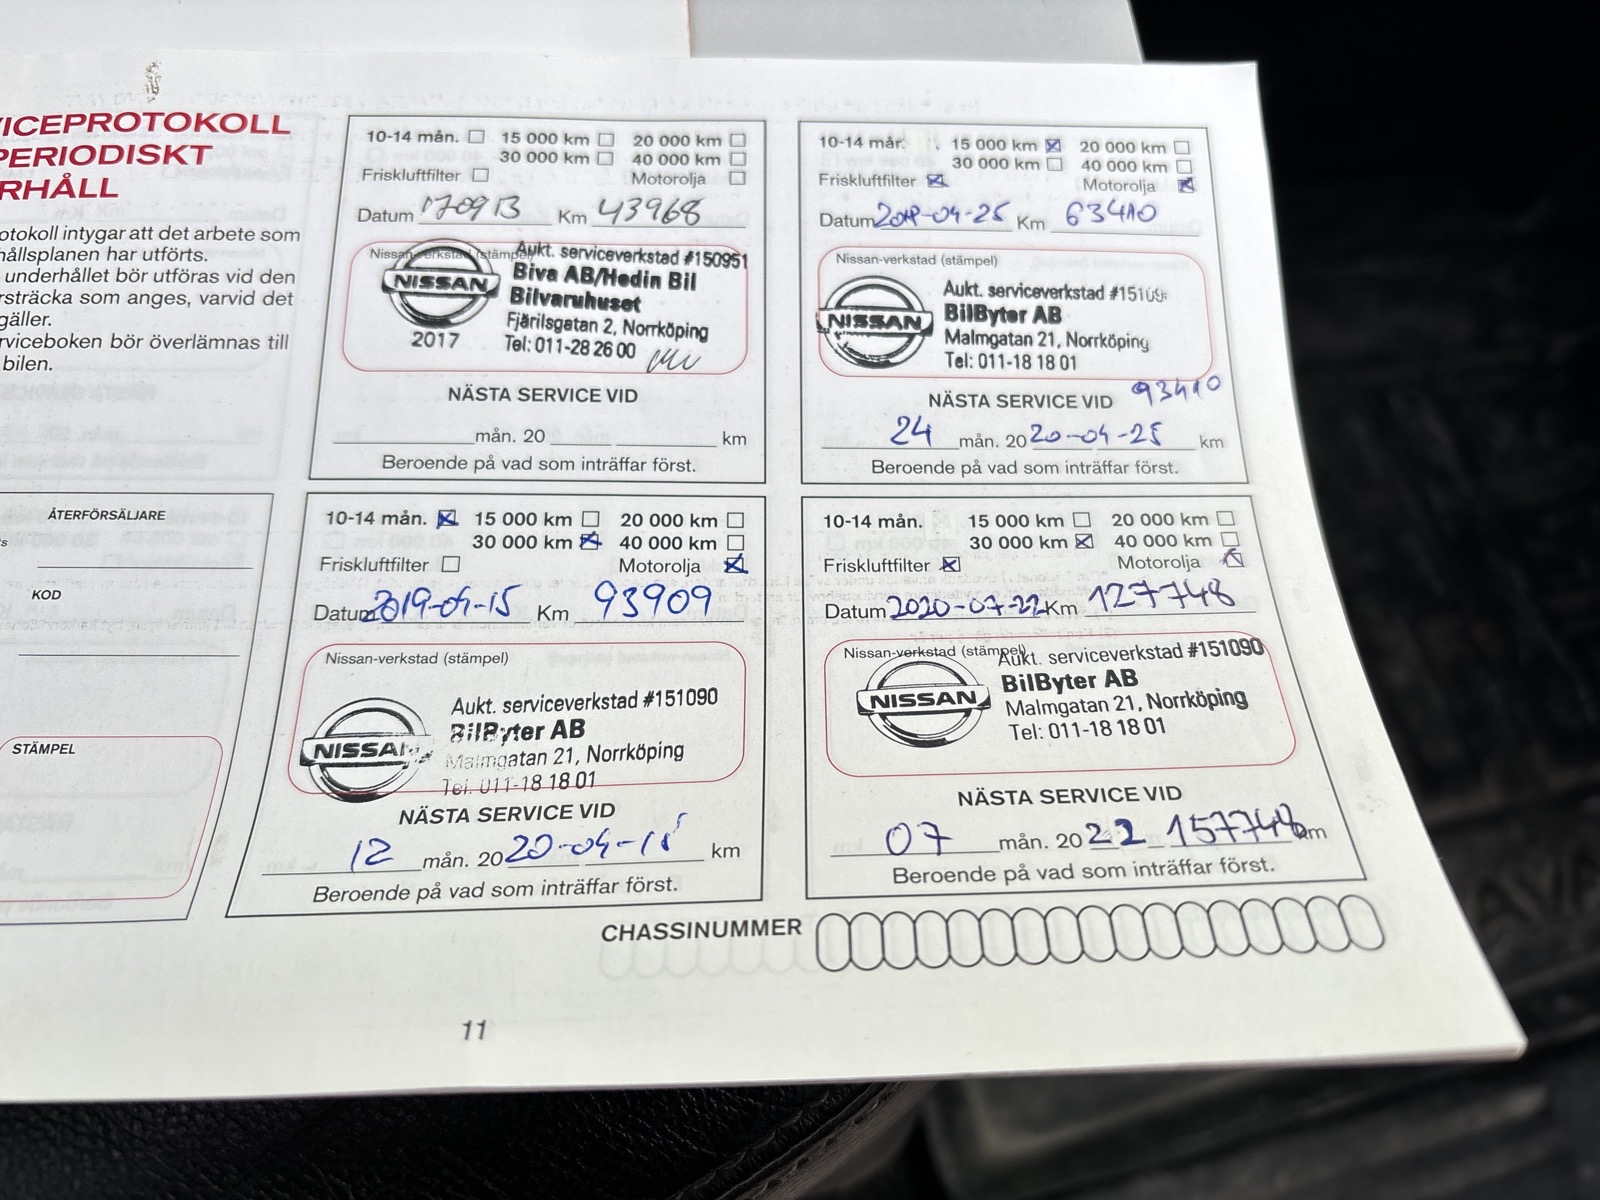 VICEPROTOKOLL
PERIODISKT
RHÅLL
otokoll intygar att det arbete som
hållsplanen har utförts.
underhållet bör utföras vid den
rsträcka som anges, varvid det
gäller.
rviceboken bör överlämnas till
bilen.
ÅTERFÖRSÄLJARE
KOD
STÄMPEL
10-14 mån. 15 000 km 20 000 km
30 000 km 40 000 km
Friskluftfilter Motorolja
Datum 170913 Km 43968
Nissan-verkstad (stämpel)
Aukt. serviceverkstad #150951
NISSAN
2017
Biva AB/Hedin Bil
Bilvaruhuset
Fjärilsgatan 2, Norrköping
Tel: 011-28 26 00
NÄSTA SERVICE VID
mån. 20 km
Beroende på vad som inträffar först.
10-14 mån. 15 000 km 20 000 km
30 000 km 40 000 km
Friskluftfilter Motorolja
Datum -04-25 Km 63410
Nissan-verkstad (stämpel)
NISSAN
Aukt. serviceverkstad
BilByter AB
Malmgatan 21, Norrköping
Tel: 011-18 18 01
NÄSTA SERVICE VID 93410
24 mån. 20 20-04-25 km
Beroende på vad som inträffar först.
10-14 mån. 15 000 km 20 000 km
30 000 km 40 000 km
Friskluftfilter Motorolja
Datum 2019-04-15 Km 93909
Nissan-verkstad (stämpel)
NISSAN
Aukt. serviceverkstad #151090
BilByter AB
Malmgatan 21, Norrköping
Tel: 011-18 18 01
NÄSTA SERVICE VID
12 mån. 20 20-04-15 km
Beroende på vad som inträffar först.
10-14 mån. 15 000 km 20 000 km
30 000 km 40 000 km
Friskluftfilter Motorolja
Datum 2020-07-22 Km 127748
Nissan-verkstad (stämpel)
NISSAN
Aukt. serviceverkstad #151090
BilByter AB
Malmgatan 21, Norrköping
Tel: 011-18 18 01
NÄSTA SERVICE VID
07 mån. 20 22 157748 km
Beroende på vad som inträffar först.
CHASSINUMMER
11